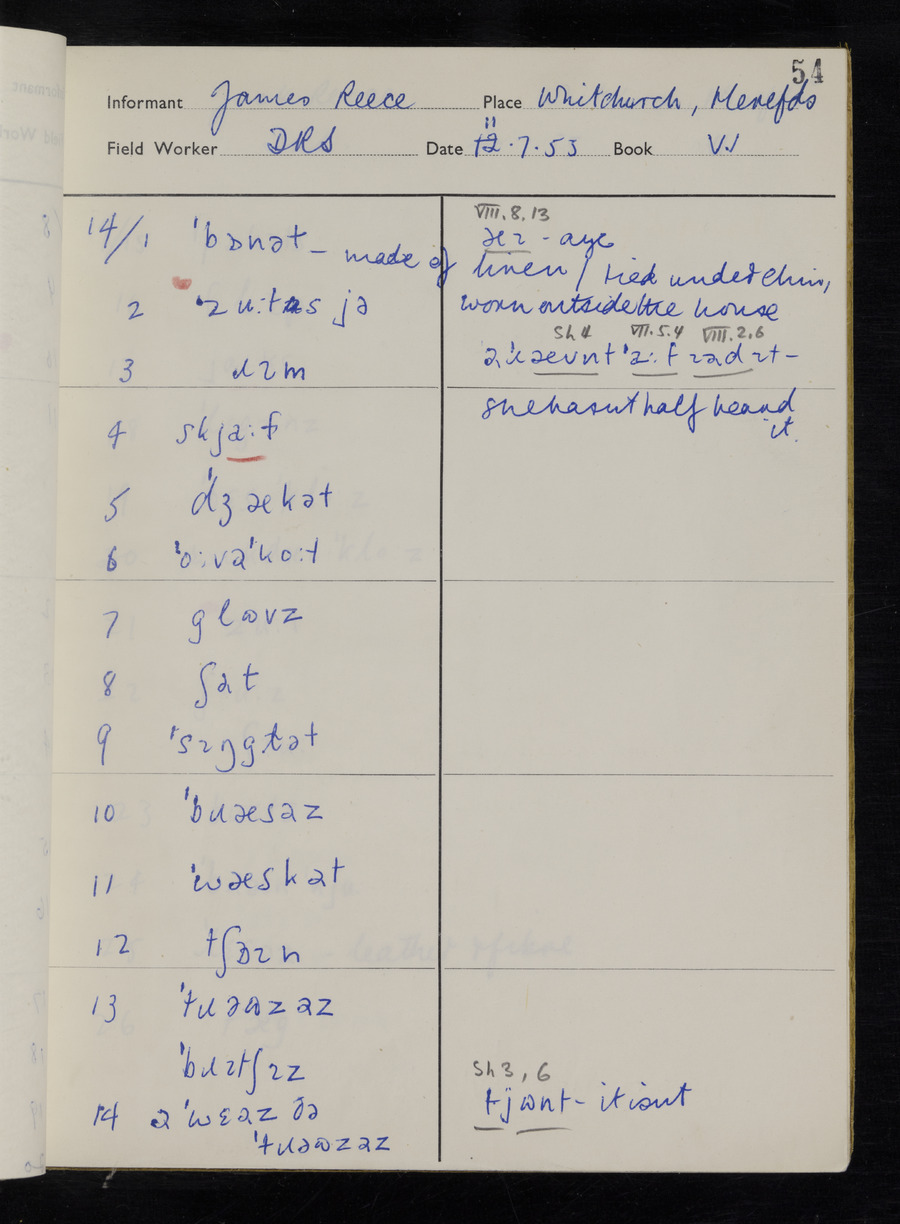 54
Informant James Reece Place Whitchurch, Herefds
Field Worker DRS Date 11 12.7.53 Book VI
14/1 ˈbɒnət – made of linen / tied under chin,
worn outside the house
2
3 ɹɪm
4 skjaːf
5 ˈdʒækət
6 ˈoːvəˈkoːt
7 glɷvz
8 ʃət
9 ˈsɪŋglət
10 ˈbɹæsəz
11 ˈwæskət
12 tʃɒɪn
13 ˈtɹəɷzəz
ˈbɹɪtʃɪz
14 ə ˈwɛəz ðə
ˈtɹəɷzəz
VIII.8.13
əɪ – aye
Sh 4 VII.5.4 VIII.2.6
she hasn't half heard
it.
Sh 3, 6
tjɷnt – it isn't